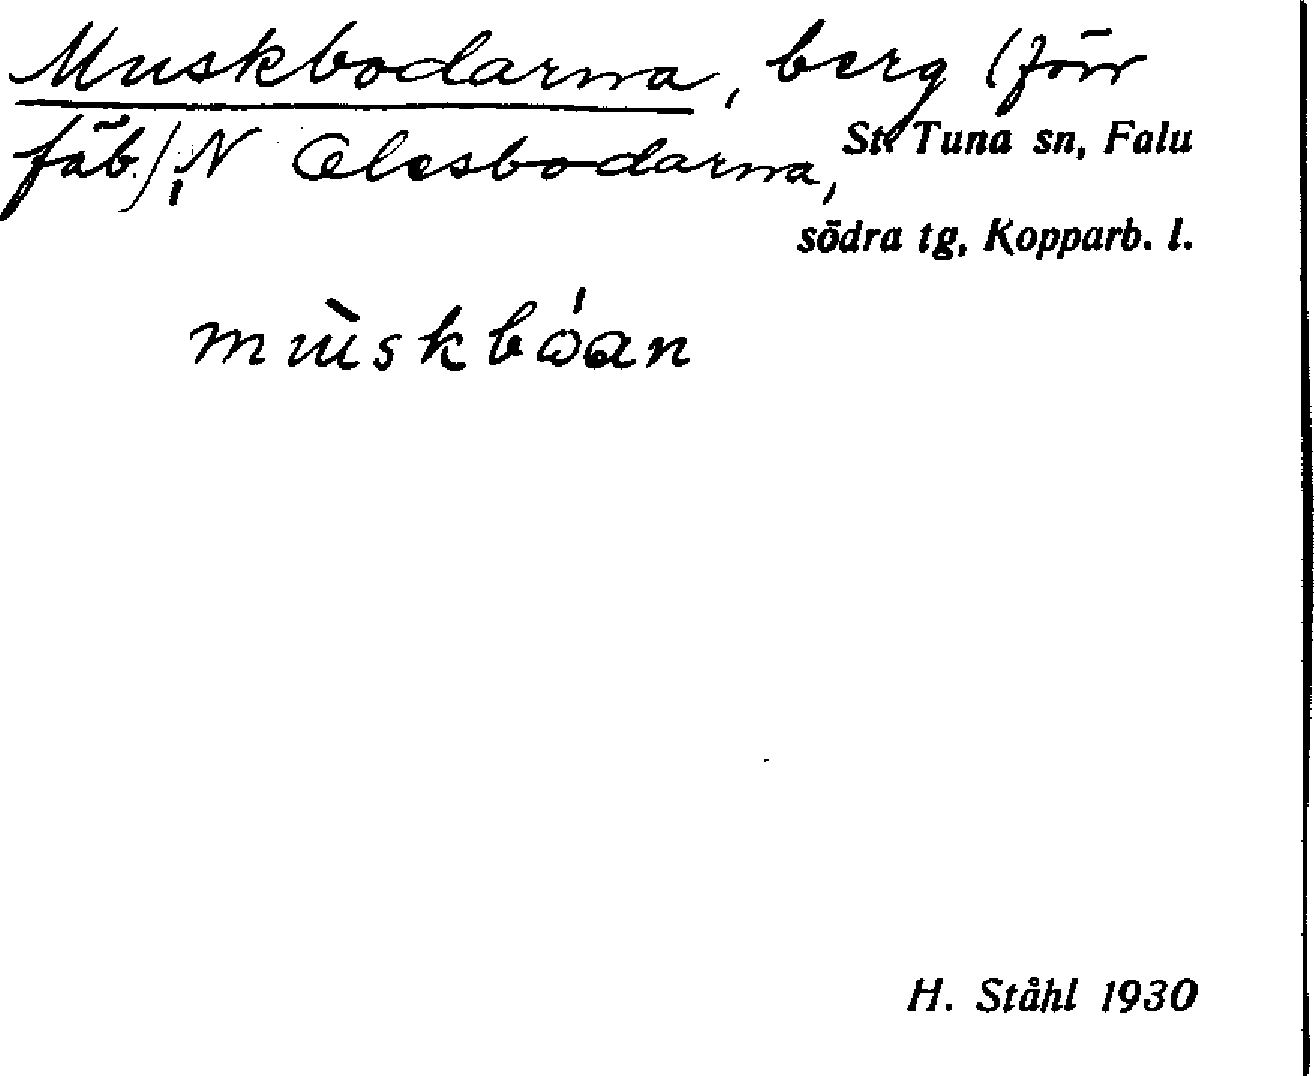 Muskbodarna, berg (förr
fäb.), N Olesbodarna,
St. Tuna sn, Falu
södra tg, Kopparb. l.
mùskbóan
H. Ståhl 1930